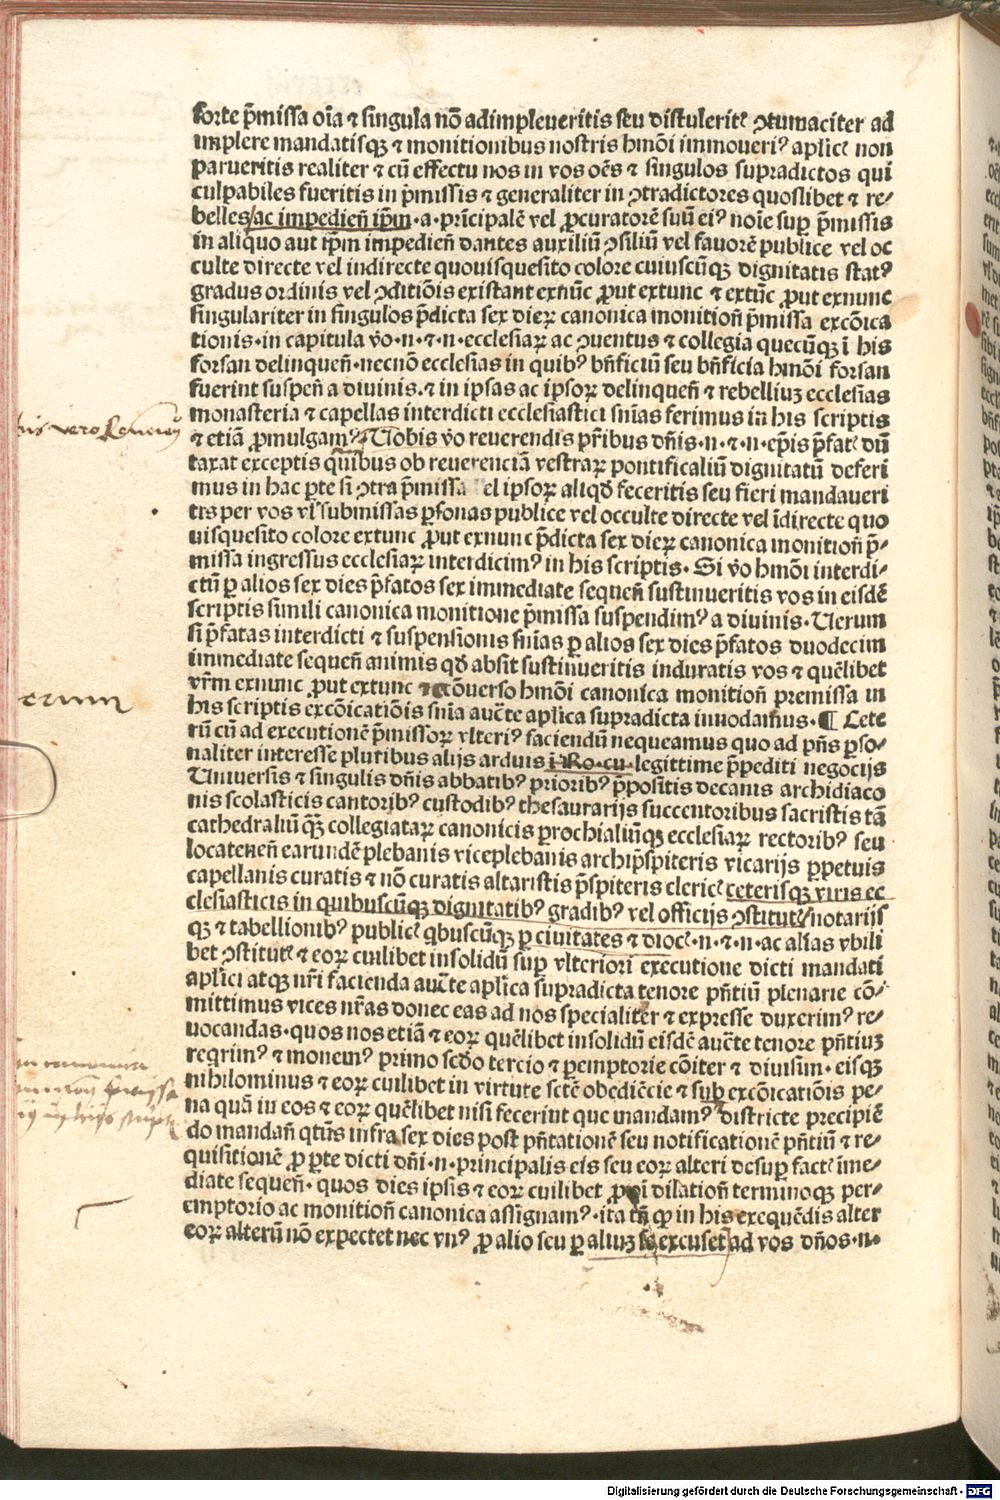 forte p̄missa oīa ⁊ singula nō adimpleveritis seu distulerit⁊ ꝯtumaciter ad
implere mandatisqꝫ ⁊ monitionibus nostris hmōi immoveriꝰ aplic⁊ non
parueritis realiter ⁊ cū effectu nos in vos oēs ⁊ singulos supradictos qui
culpabiles fueritis in p̄missis ⁊ generaliter in ꝯtradictores quoslibet ⁊ re⸗
belles/ac impedien̄ ip̄m·a·prīcipalē vel ꝓcuratorē suū eiꝰ noīe suꝑ p̄missis
in aliquo aut ip̄m impedien̄ dantes auxiliū ꝯsiliū vel favorē publice vel oc
culte directe vel indirecte quovisquesito colore cuiuscūqꝫ dignitatis statꝰ
gradus ordinis vel ꝯditiōis existant exnūc ꝓut extunc ⁊ extūc ꝓut exnunc
singulariter in singulos p̄dicta sex dieꝝ canonica monition̄ p̄missa excōica
tionis·in capitula ṽo·n·⁊·n·ecclesiaꝝ ac ꝯuentus ⁊ collegia quecūqꝫ ī his
forsan delinquen̄·necnō ecclesias in quibꝰ bn̄ficiū seu bn̄ficia hmōi forsan
fuerint suspen̄ a divinis.⁊ in ipsas ac ipsoꝝ delinquen̄ ⁊ rebelliuꝫ ecclesias
monasteria ⁊ capellas interdicti ecclesiastici snīas ferimus in his scriptis
⁊ etiā ꝓmulgamꝰ Uobis ṽo reuerendis pr̄ibus dn̄is·n·⁊·n·ep̄is p̄fat⁊ dū
taxat exceptis quibus ob reuerenciā vestraꝝ pontificaliū dignitatū deferi
mus in hac ꝑte si ꝯtra p̄missa el ipsoꝝ aliqd̄ feceritis seu fieri mandaueri
tis per vos vl̓ submissas ꝑsonas publice vel occulte directe vel īdirecte quo
uisquesito colore extunc ꝓut exnunc p̄dicta sex dieꝝ canonica monition̄ p̄⸗
missa ingressus ecclesiaꝝ interdicimꝰ in his scriptis· Si ṽo hmōi interdi⸗
ctū ꝑ alios sex dies p̄fatos sex immediate sequen̄ sustinueritis vos in eisdē
scriptis simili canonica monitione p̄missa suspendimꝰ a diuinis·Uerum
si p̄fatas interdicti ⁊ suspensionis snīas ꝑ alios sex dies p̄fatos duodecim
immediate sequen̄ animis qd̄ absit sustinueritis induratis vos ⁊ quēlibet
vr̄m exnunc ꝓut extunc ⁊ ecōuerso hmōi canonica monition̄ premissa in
his scriptis excōicatiōis snīa auct̄e aplica supradicta innodamus·¶ Cete
rū cū ad executionē p̄missoꝝ vlteriꝰ faciendū nequeamus quo ad pn̄s ꝑso⸗
naliter interesse pluribus alijs arduis ī Ro·cu·legittime p̄pediti negocijs
Universis ⁊ singulis dn̄is abbatibꝰ prioribꝰ p̄positis decanis archidiaco
nis scolasticis cantoribꝰ custodibꝰ thesaurarijs succentoribus sacristis tā
cathedraliū qꝫ̄ collegiataꝝ canonicis ꝑrochialiūqꝫ ecclesiaꝝ rectoribꝰ seu
locatenen̄ earundē plebanis viceplebanis archip̄spiteris vicarijs ꝑpetuis
capellanis curatis ⁊ nō curatis altaristis p̄spiteris cleric⁊ ceterisqꝫ viris ec
clesiasticis in quibuscūqꝫ dignitatibꝰ gradibꝰ vel officijs ꝯstitut⁊ notarijs
qꝫ ⁊ tabellionibꝰ public⁊ qbuscūqꝫ ꝑ civitates ⁊ dioc⁊·n·⁊·n·ac alias vbili
bet ꝯstitut⁊ ⁊ eoꝝ cuilibet insolidū suꝑ vlteriori executione dicti mandati
aplici atqꝫ nr̄i facienda auct̄e aplica supradicta tenore pn̄tiū plenarie cō⸗
mittimus vices nr̄as donec eas ad nos specialiter ⁊ expresse duxerimꝰ re⸗
uocandas·quos nos etiā ⁊ eoꝝ quēlibet insolidū eisdē auct̄e tenore pn̄tiuꝫ
reqrimꝰ ⁊ monemꝰ primo scd̄o tercio ⁊ ꝑemptorie cōiter ⁊ diuisim·eisqꝫ
nihilominus ⁊ eoꝝ cuilibet in virtute sctē obediēcie ⁊ sub excōicatiōis pe⸗
na quā in eos ⁊ eoꝝ quēlibet nisi fecerint que mandamꝰ districte precipiē
do mandan̄ qtūs infra sex dies post pn̄tationē seu notificationē pn̄tiū ⁊ re⸗
quisitionē ꝓ ꝑte dicti dn̄i·n·principalis eis seu eoꝝ alteri desuꝑ fact⁊ īme⸗
diate sequen̄·quos dies ipsis ⁊ eoꝝ cuilibet ꝓ oī dilation̄ terminoqꝫ per⸗
emptorio ac monition̄ canonica assignamꝰ·ita tn̄ ꝙ in his exequēdis alter
eoꝝ alterū nō expectet nec vnꝰ ꝓ alio seu ꝑ aliuꝫ se excuset ad vos dn̄os·n·
Digitalisierung gefördert durch die Deutsche Forschungsgemeinschaft - DFG